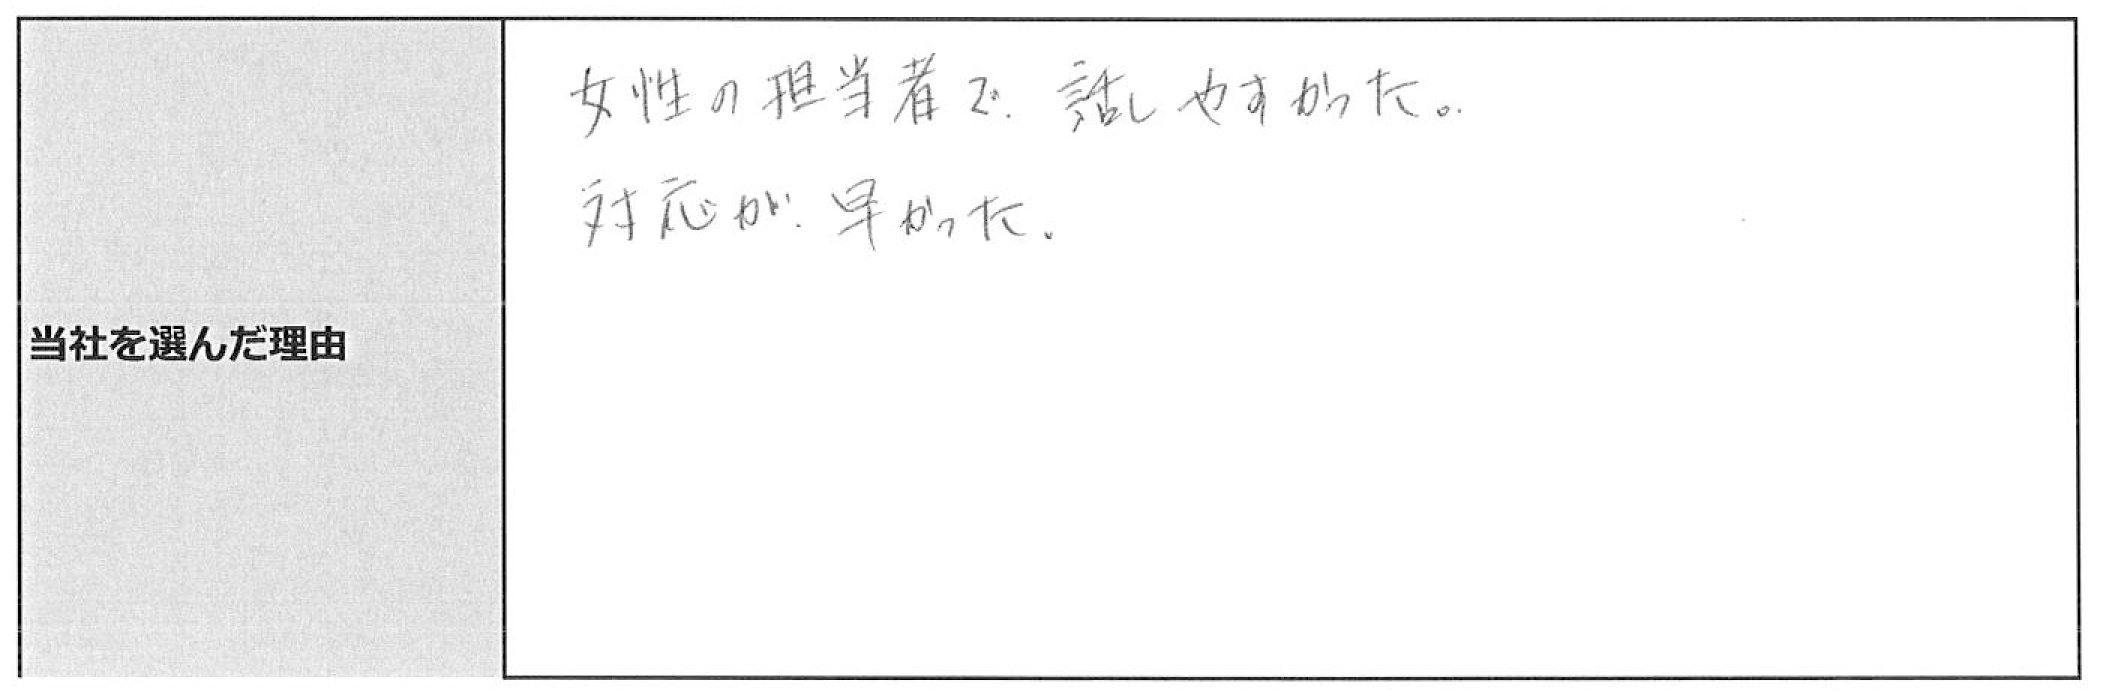 女性の担当者で、話しやすかった。
対応が、早かった。
当社を選んだ理由